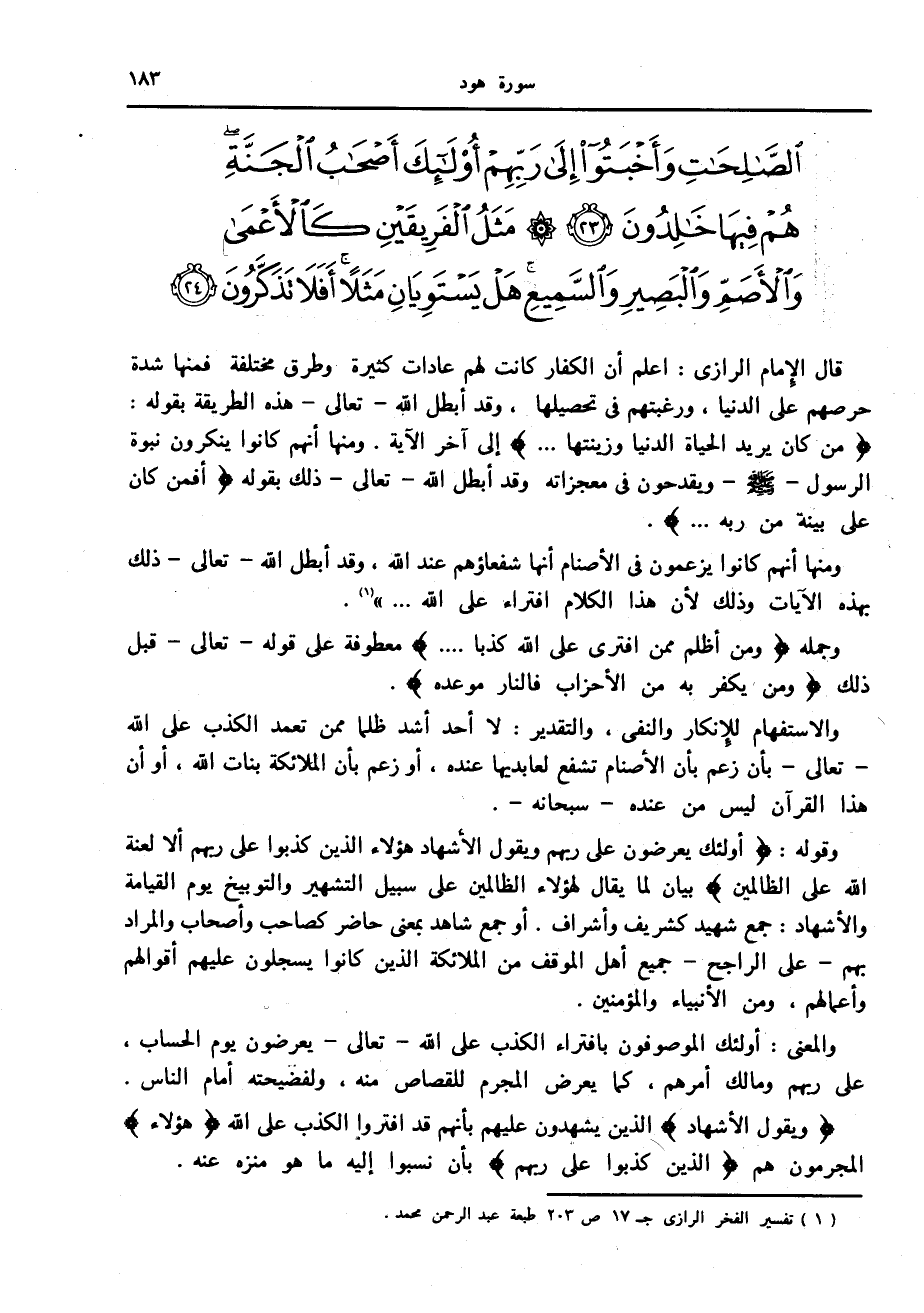 سورة هود
١٨٣
ٱلصَّٰلِحَٰتِ وَأَخْبَتُوٓا۟ إِلَىٰ رَبِّهِمْ أُو۟لَٰٓئِكَ أَصْحَٰبُ ٱلْجَنَّةِ ۖ
هُمْ فِيهَا خَٰلِدُونَ ﴿٢٣﴾ ۞ مَثَلُ ٱلْفَرِيقَيْنِ كَٱلْأَعْمَىٰ
وَٱلْأَصَمِّ وَٱلْبَصِيرِ وَٱلسَّمِيعِ ۚ هَلْ يَسْتَوِيَانِ مَثَلًا ۚ أَفَلَا تَذَكَّرُونَ ﴿٢٤﴾
قال الإمام الرازى : اعلم أن الكفار كانت لهم عادات كثيرة وطرق مختلفة فمنها شدة
حرصهم على الدنيا ، ورغبتهم فى تحصيلها ، وقد أبطل الله – تعالى – هذه الطريقة بقوله :
﴿ من كان يريد الحياة الدنيا وزينتها ... ﴾ إلى آخر الآية . ومنها أنهم كانوا ينكرون نبوة
الرسول – ﷺ – ويقدحون فى معجزاته وقد أبطل الله – تعالى – ذلك بقوله ﴿ أفمن كان
على بينة من ربه ... ﴾ .
ومنها أنهم كانوا يزعمون فى الأصنام أنها شفعاؤهم عند الله ، وقد أبطل الله – تعالى – ذلك
بهذه الآيات وذلك لأن هذا الكلام افتراء على الله ... »(١) .
وجمله ﴿ ومن أظلم ممن افترى على الله كذبا .... ﴾ معطوفة على قوله – تعالى – قبل
ذلك ﴿ ومن يكفر به من الأحزاب فالنار موعده ﴾ .
والاستفهام للإنكار والنفى ، والتقدير : لا أحد أشد ظلما ممن تعمد الكذب على الله
– تعالى – بأن زعم بأن الأصنام تشفع لعابديها عنده ، أو زعم بأن الملائكة بنات الله ، أو أن
هذا القرآن ليس من عنده – سبحانه – .
وقوله : ﴿ أولئك يعرضون على ربهم ويقول الأشهاد هؤلاء الذين كذبوا على ربهم ألا لعنة
الله على الظالمين ﴾ بيان لما يقال لهؤلاء الظالمين على سبيل التشهير والتوبيخ يوم القيامة
والأشهاد : جمع شهيد كشريف وأشراف . أو جمع شاهد بمعنى حاضر كصاحب وأصحاب والمراد
بهم – على الراجح – جميع أهل الموقف من الملائكة الذين كانوا يسجلون عليهم أقوالهم
وأعمالهم ، ومن الأنبياء والمؤمنين .
والمعنى : أولئك الموصوفون بافتراء الكذب على الله – تعالى – يعرضون يوم الحساب ،
على ربهم ومالك أمرهم ، كما يعرض المجرم للقصاص منه ، ولفضيحته أمام الناس .
﴿ ويقول الأشهاد ﴾ الذين يشهدون عليهم بأنهم قد افتروا الكذب على الله ﴿ هؤلاء ﴾
المجرمون هم ﴿ الذين كذبوا على ربهم ﴾ بأن نسبوا إليه ما هو منزه عنه .
( ١ ) تفسير الفخر الرازى جـ ١٧ ص ٢٠٣ طبعة عبد الرحمن محمد .